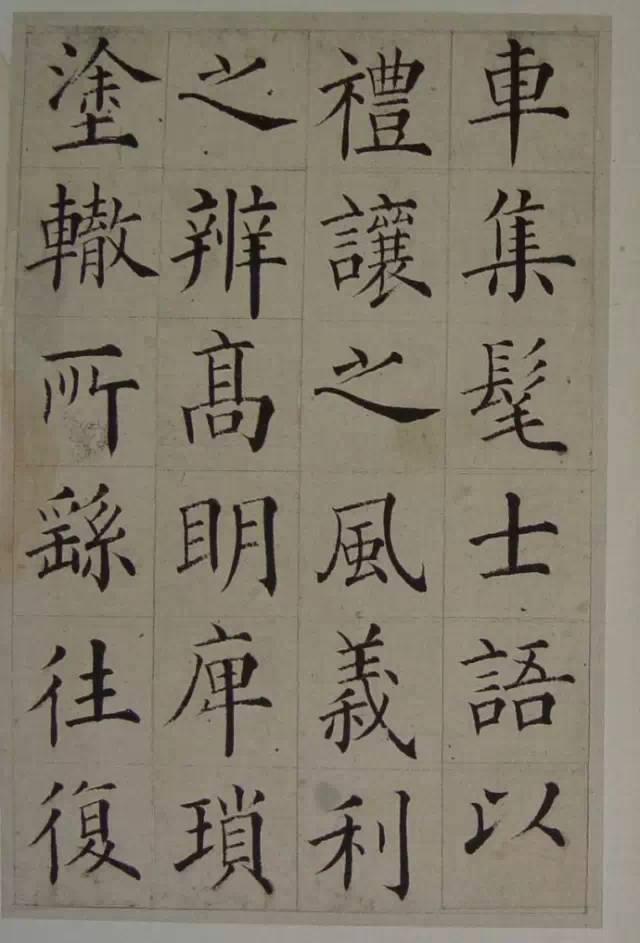 車集髦士語以
禮讓之風義利
之辨髙明庳瑣
塗轍所繇往復